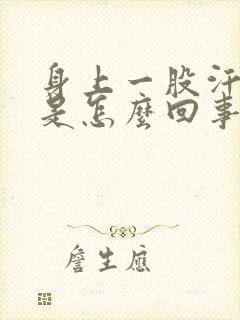 身上一股汗
是怎麼回事
詹生應